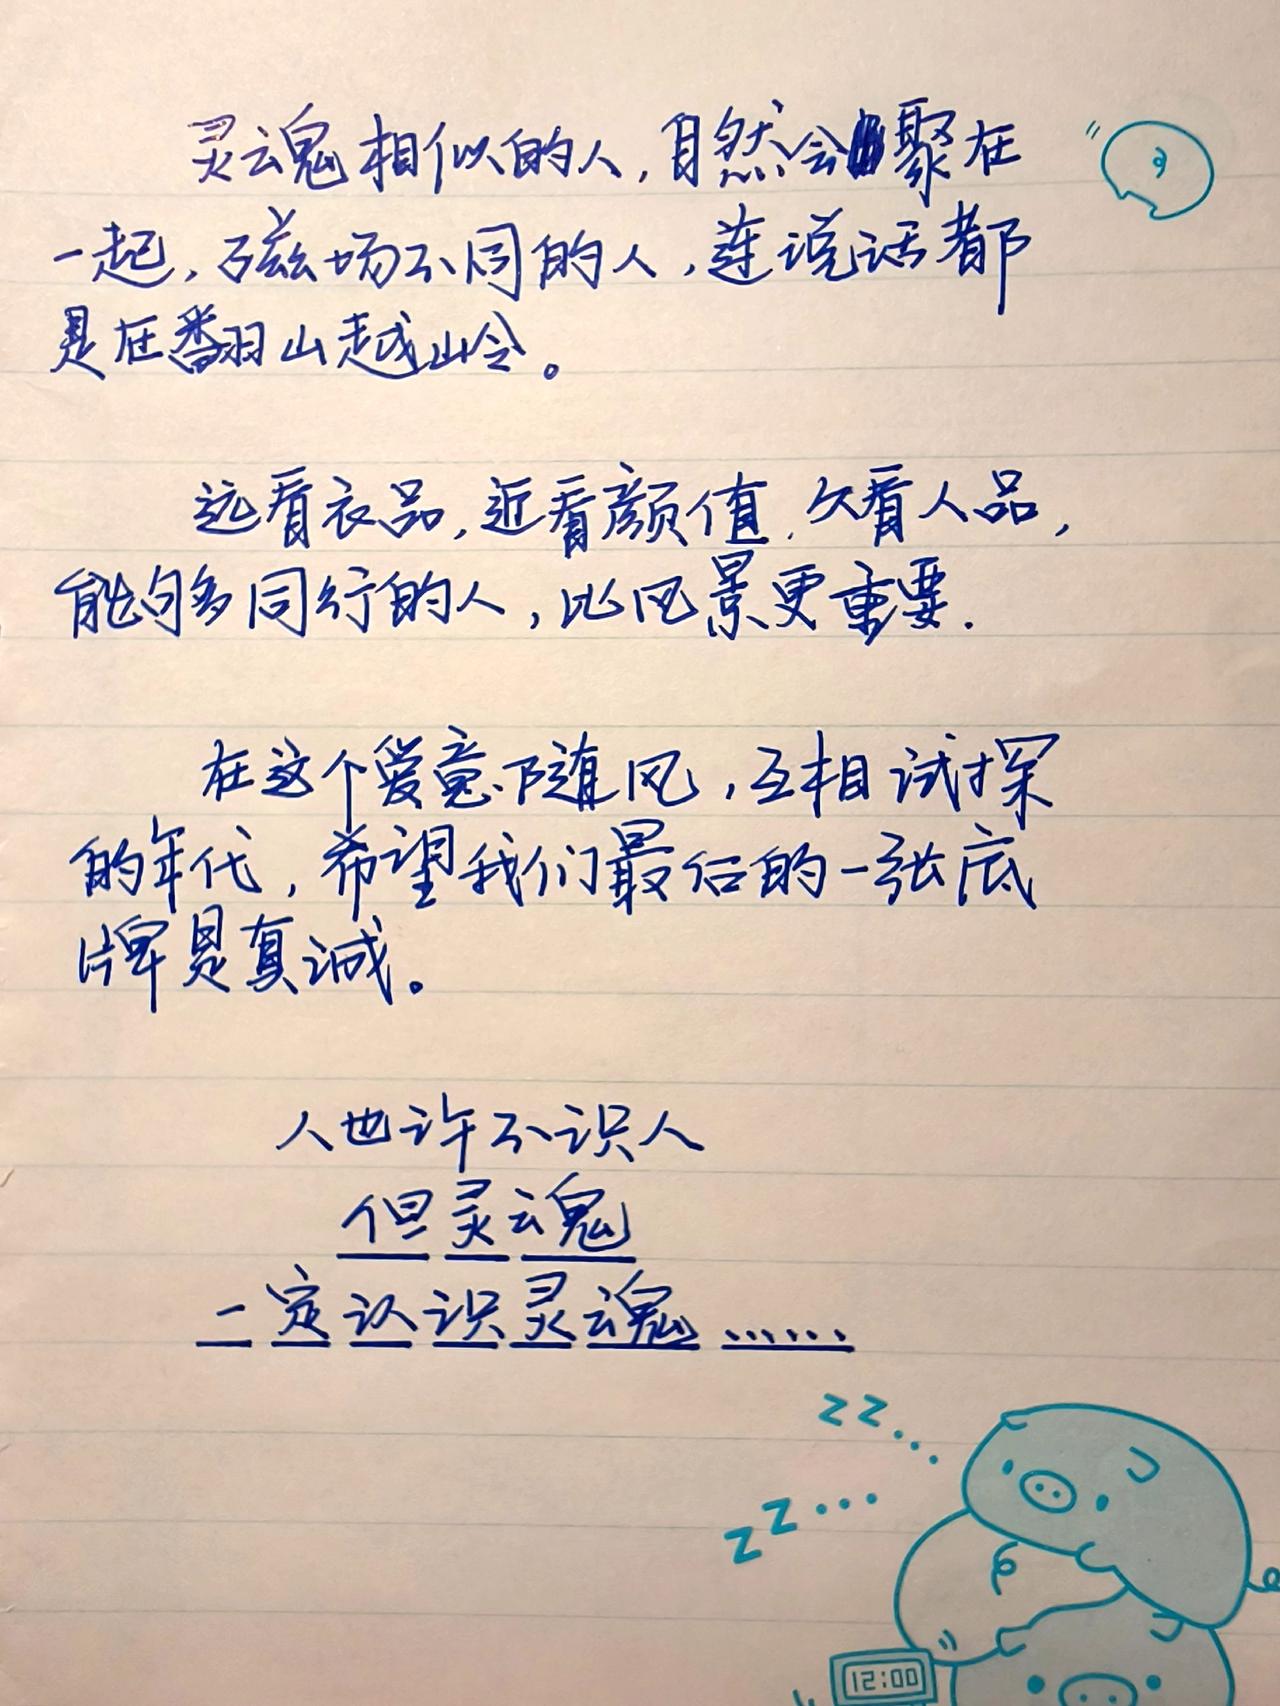 灵魂相似的人，自然会聚在
一起，磁场不同的人，连说话都
是在翻山越岭。
远看衣品，近看颜值，久看人品，
能够同行的人，比风景更重要.
在这个爱意随风，互相试探
的年代，希望我们最后的一张底
牌是真诚。
人也许不识人
但灵魂
一定认识灵魂……
ZZ...
ZZ...
12:00